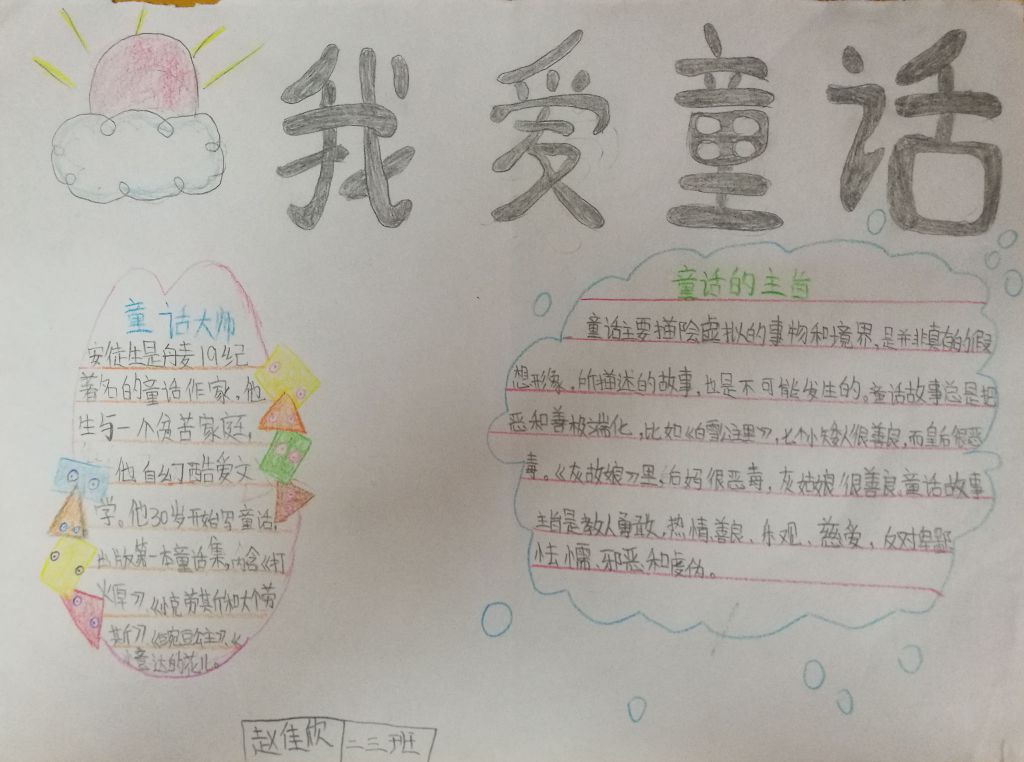 我爱童话
童话大师
安徒生是丹麦19纪
著名的童话作家,他
生与一个贫苦家庭,
他自幻酷爱文
学。他30岁开始写童话,
出版第一本童话集,内含《打
火匣》《小克劳斯和大个劳
斯》《豌豆公主》、《
童达的花儿。
童话的主旨
童话主要描绘虚拟的事物和境界,是并非真的假
想形象,所描述的故事,也是不可能发生的。童话故事总是把
恶和善极端化,比如《白雪公主里》,七个小矮人很善良,而皇后很恶
毒。《灰故娘》里,后妈很恶毒,灰姑娘很善良.童话故事
主旨是教人勇敢、热情、善良、乐观、慈爱,反对卑鄙
怯懦、邪恶和虚伪。
赵佳欣 二三班